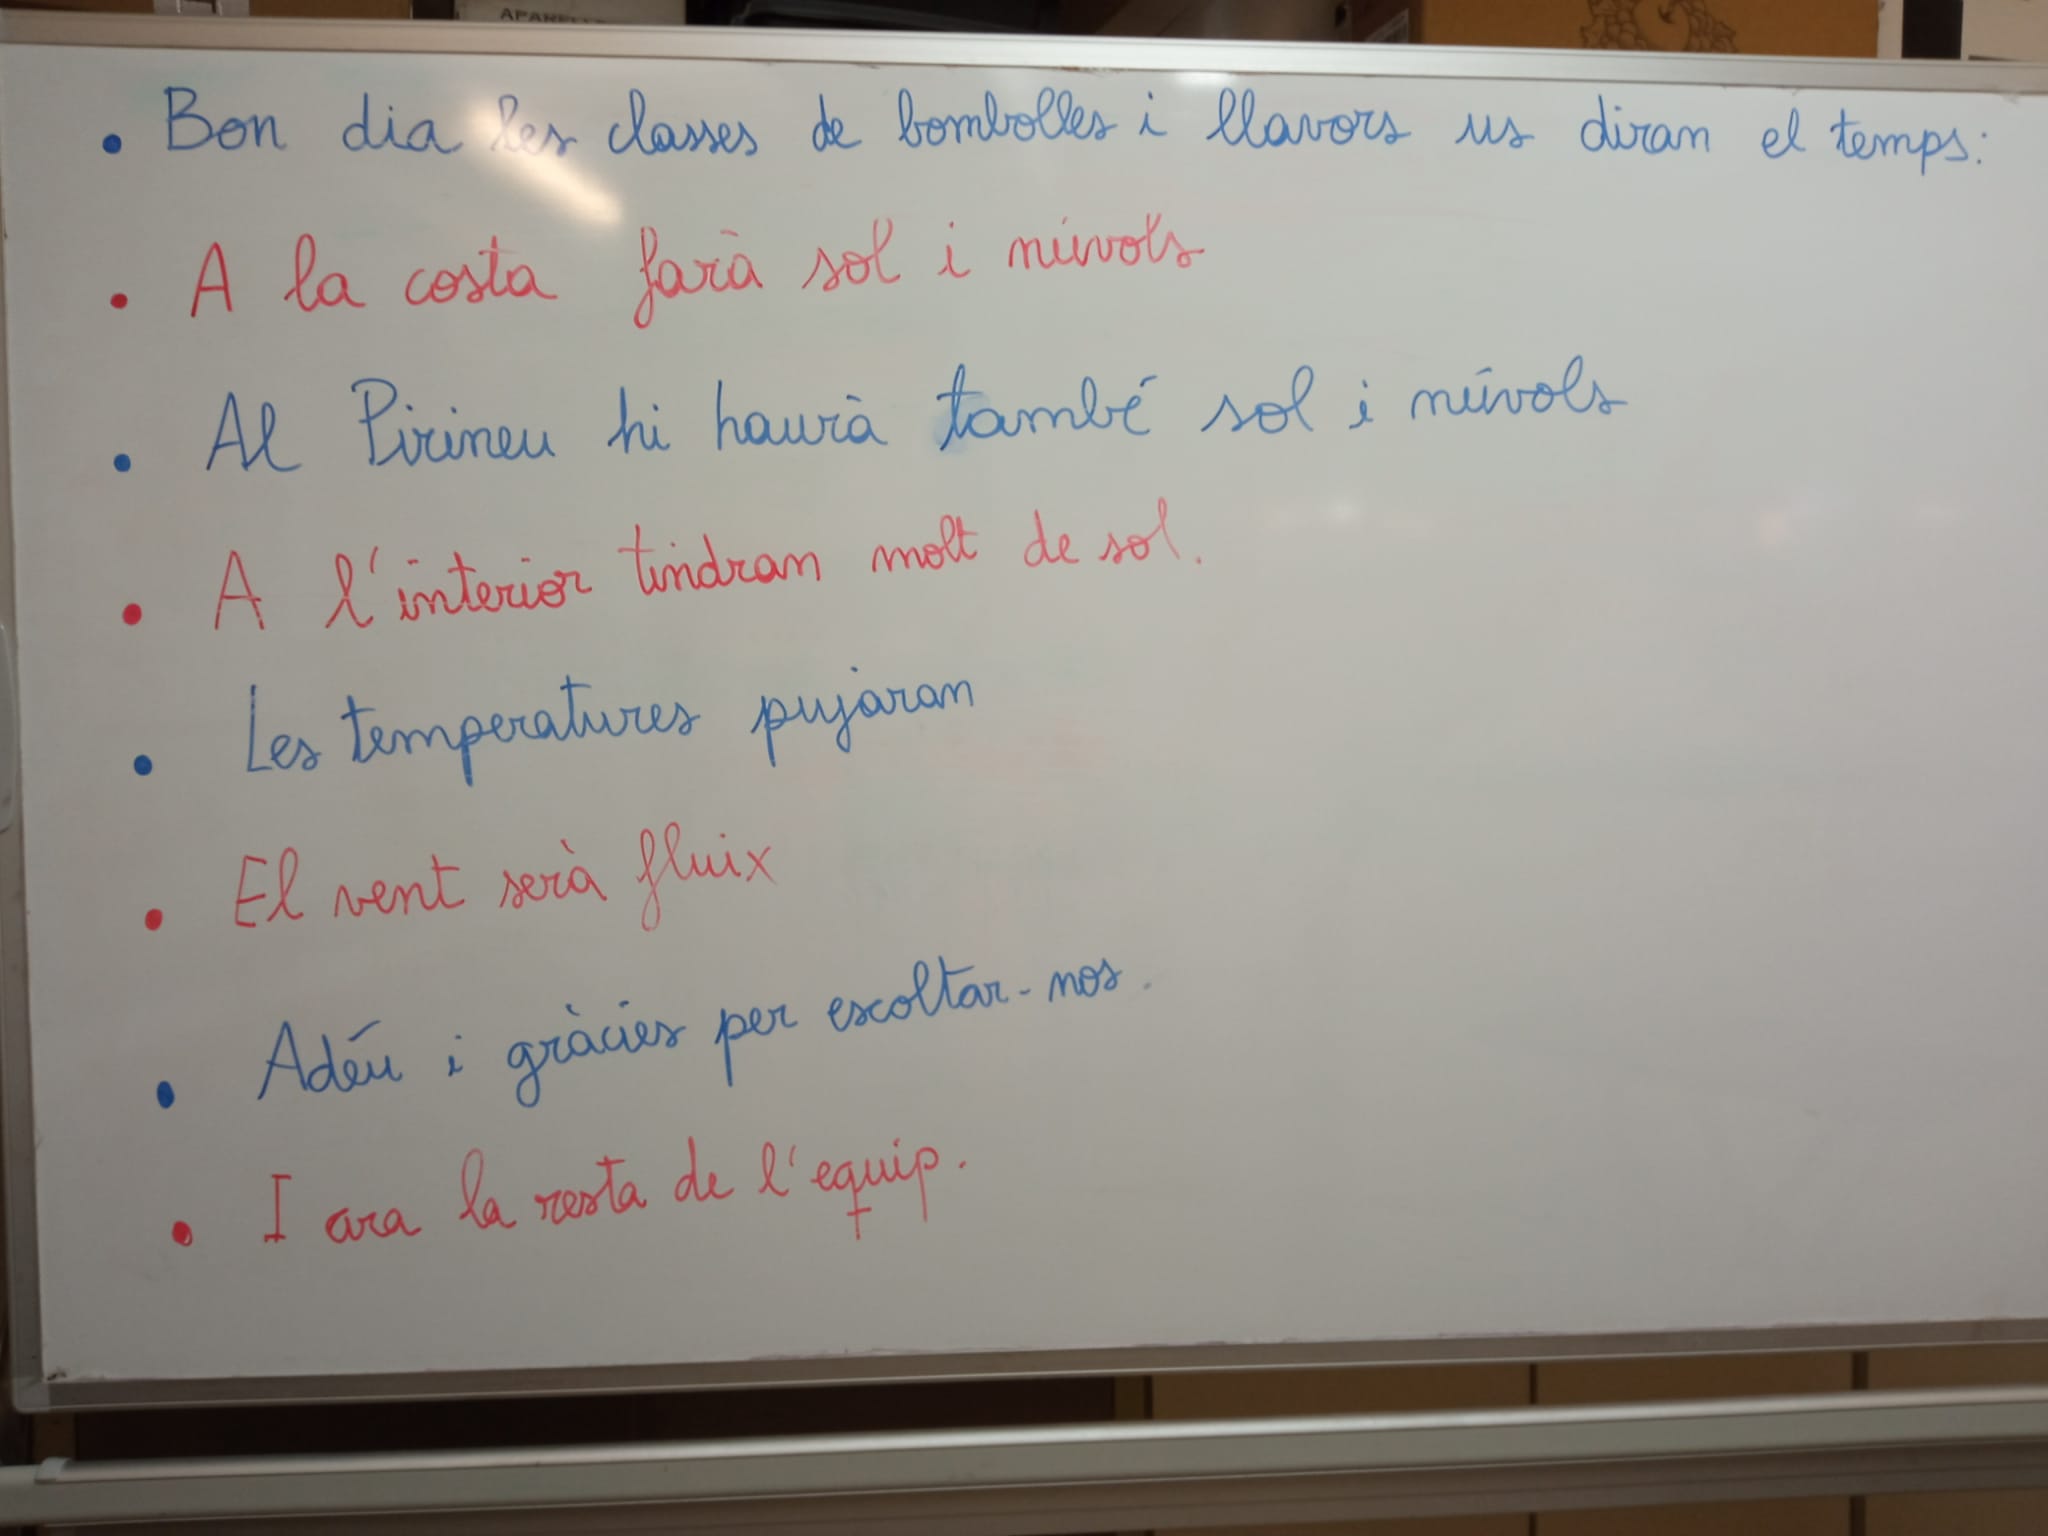 APARELL
• Bon dia les classes de bombolles i llavors us diran el temps:
• A la costa farà sol i núvols
• Al Pirineu hi haurà també sol i núvols
• A l'interior tindran molt de sol.
• Les temperatures pujaran
• El vent serà fluix
• Adéu i gràcies per escoltar-nos.
• I ara la resta de l'equip.